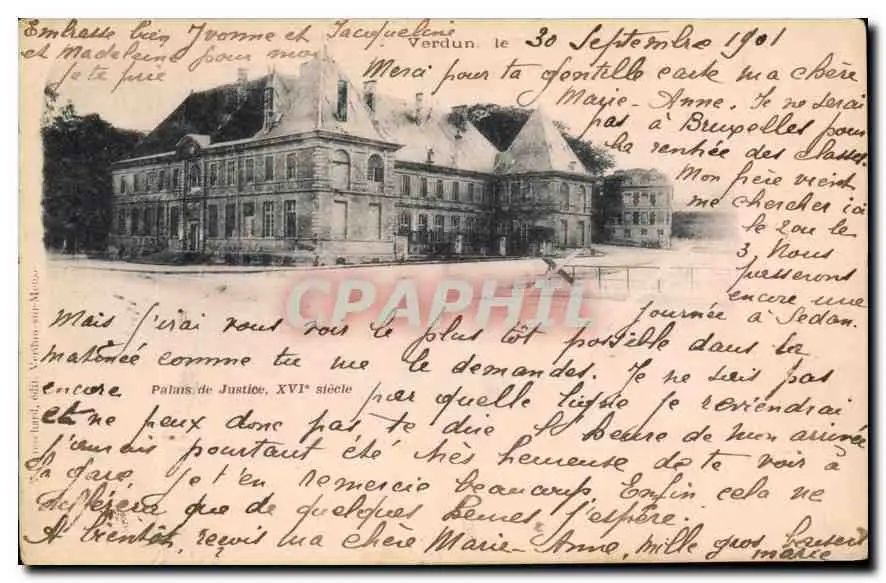 Embrasse bien Yvonne et Jacqueline
et Madeleine pour moi
je te prie
Verdun, le 30 Septembre 1901
Merci pour ta gentille carte ma chère
Marie-Anne. Je ne serai
pas à Bruxelles pour
la rentrée des classes.
Mon frère vient
me chercher ici
le 2 ou le
3 Nous
passerons
encore une
journée à Sedan.
Mais j'irai vous voir le plus tôt possible dans la
matinée comme tu me le demandes. Je ne sais pas
encore par quelle ligne je reviendrai
et ne peux donc pas te dire l'heure de mon arrivée
J'aurais pourtant été très heureuse de te voir à
la gare. Je t'en remercie beaucoup. Enfin cela ne
que de quelques heures j'espère.
A bientôt, reçois ma chère Marie-Anne, mille gros baisers
Marie
Palais de Justice, XVIe siècle
édit. Verdun-sur-Meuse
CPAPHIL